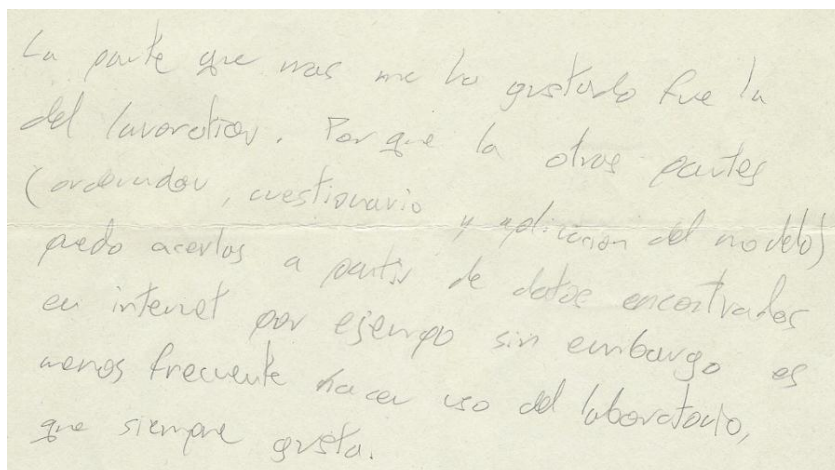 La parte que mas me ha gustado fue la
del lavorotion. Por que la otras partes
(ordenador, cuestionario y aplicación del modelo)
puedo acerlas a partir de datos encontrados
en internet por ejempo sin embargo es
menos frecuente hacer uso del laboratorio,
que siempre gusta.